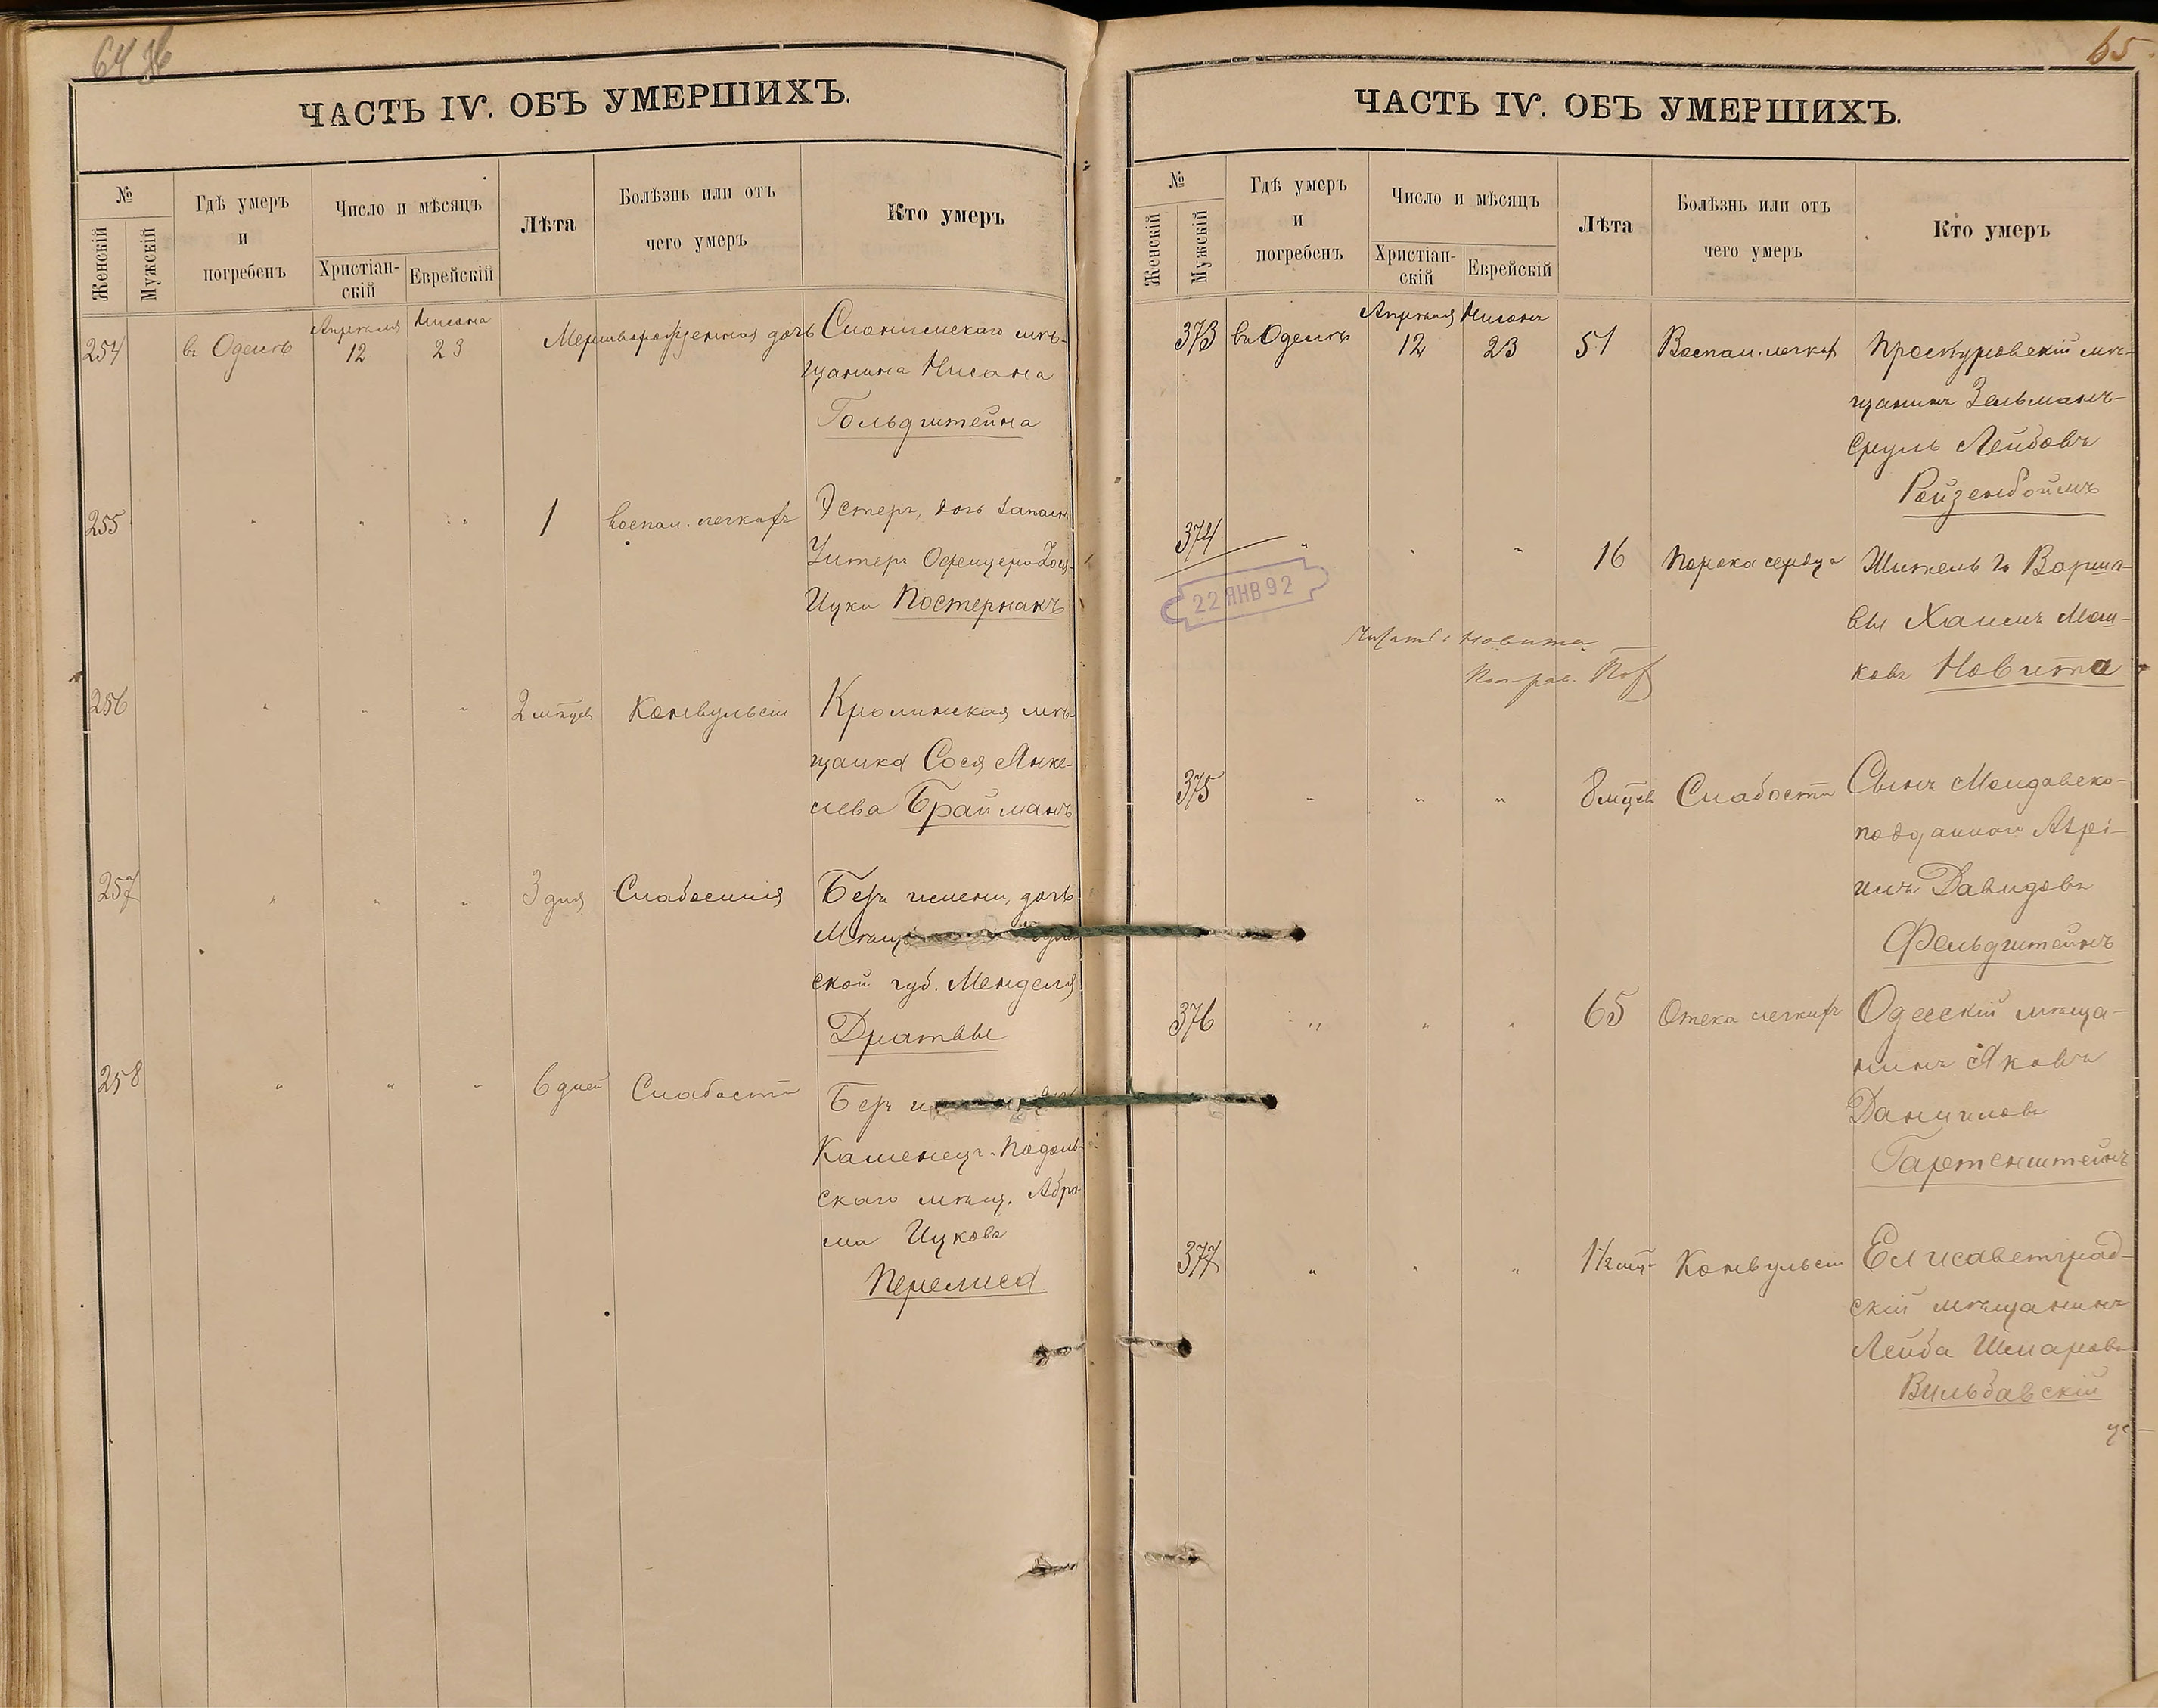 64
ЧАСТЬ IV. ОБЪ УМЕРШИХЪ.
№
Женскій
Мужскій
Гдѣ умеръ
и
погребенъ
Число и мѣсяцъ
Христіан-
скій
Еврейскій
Лѣта
Болѣзнь или отъ
чего умеръ
Кто умеръ
254 въ Одессѣ Апрѣля 12 Нисана 23 Мертворожденная дочь Слонимскаго мѣ-
щанина Нисана
Гольдштейна
255 " " " 1 Воспал. легкихъ Эстеръ, дочь запасн.
Унтеръ Офицера
Ицки Постернакъ
256 " " " 2 мѣсяц. Конвульсіи Кролинская мѣ-
щанка Сося Янке-
лева Брайманъ
257 " " " 3 дня Слабосилія Безъ имени, дочь
Мѣщ.
ской губ. Менделя
Дратвы
258 " " " 6 дней Слабости Безъ
Каменецъ-Подоль-
скаго мѣщ. Абра-
ма Ицкова
Перелиса
65
ЧАСТЬ IV. ОБЪ УМЕРШИХЪ.
№
Женскій
Мужскій
Гдѣ умеръ
и
погребенъ
Число и мѣсяцъ
Христіан-
скій
Еврейскій
Лѣта
Болѣзнь или отъ
чего умеръ
Кто умеръ
373 въ Одессѣ Апрѣля 12 Нисана 23 51 Воспал. легких Проскуровскій мѣ-
щанинъ Зельманъ-
Сруль Лейбовъ
Ройзенбоймъ
374 " " " 16 Порока сердца Житель г. Варша-
вы Хаимъ Мош-
ковъ Новита
22 ЯНВ 92
Читать: Новита
375 " " " 8 мѣсяц. Слабости Сынъ Молдавско-
подданной
имъ Давидовъ
Фельдштейнъ
376 " " " 65 Отека легкихъ Одесскій мѣща-
нинъ Яковъ
Даниилов
Гартенштейнъ
377 " " " 1½ Конвульсіи Елисаветград-
скій мѣщанинъ
Лейба Шмаровъ
Вильбавскій